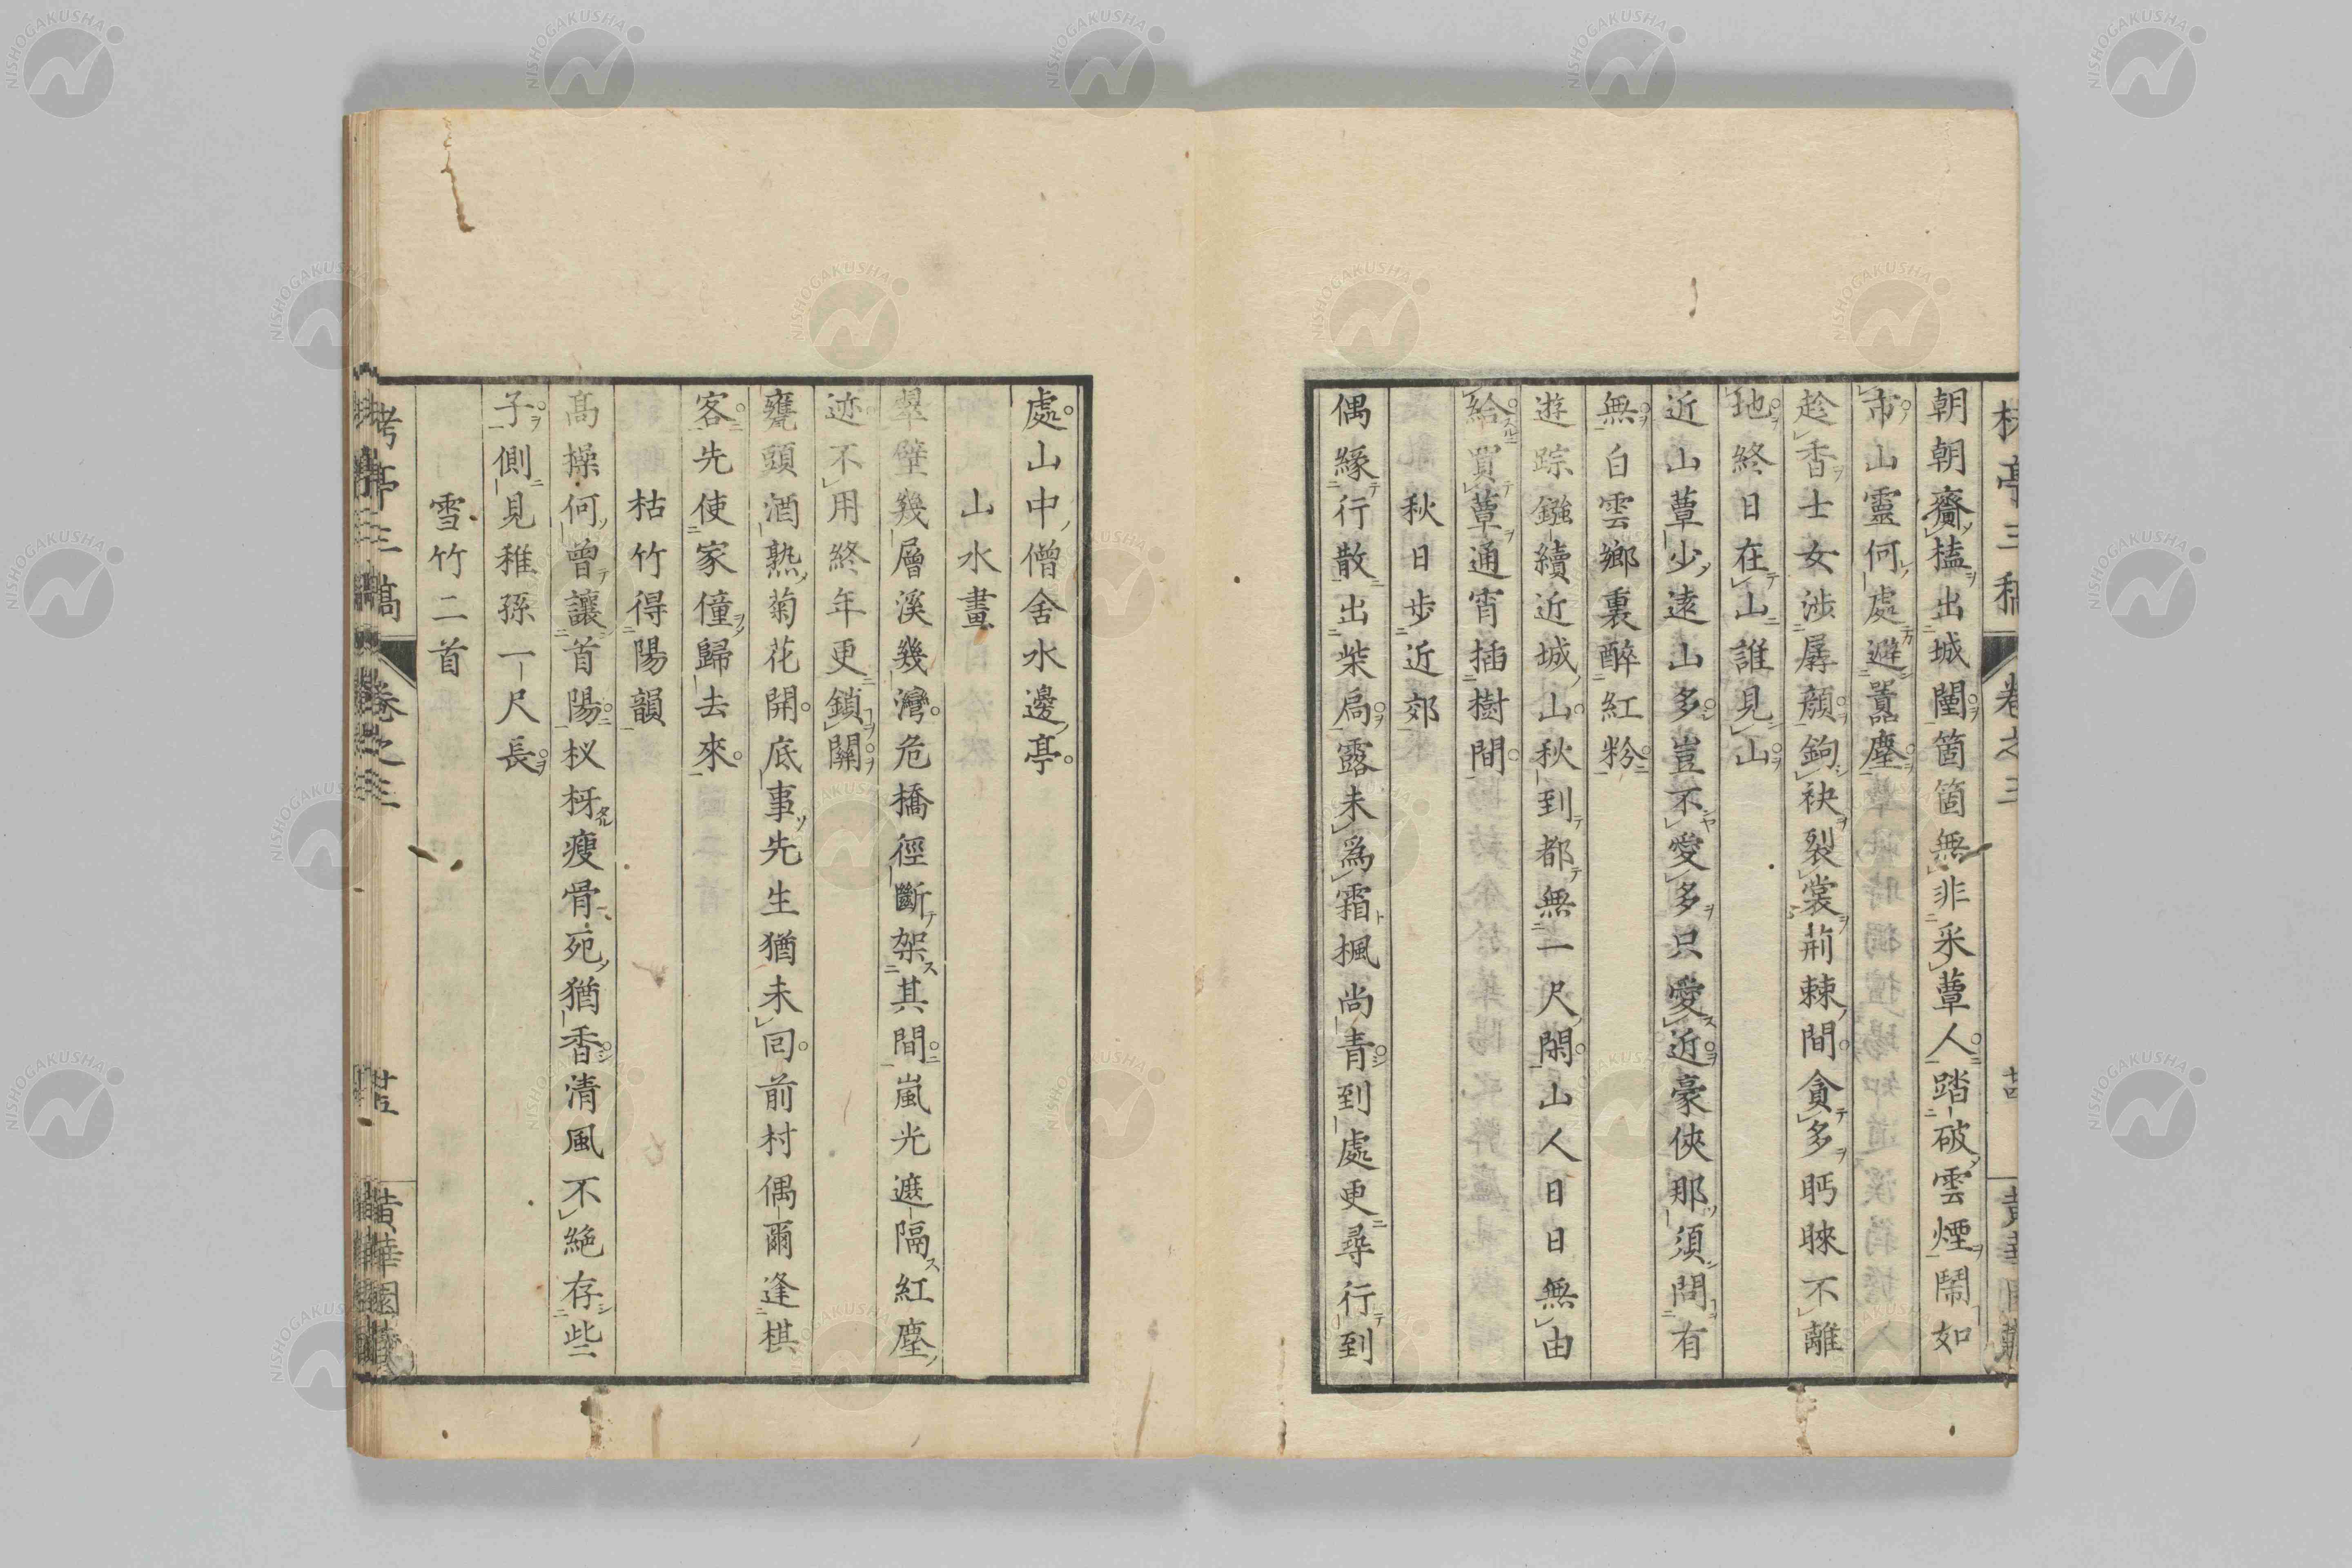 朝朝齎榼出城闉箇箇無非采蕈人踏破雲煙鬧如
市山靈何處避囂塵
趁香士女渉孱顔鉤袂裂裳荊棘間貪多眄睞不離
地終日在山誰見山
近山蕈少遠山多豈不愛多只愛近豪俠那須問有
無白雲鄉裏醉紅粉
遊踪鏹續近城山秋到都無一尺閑山人日日無由
給買蕈通宵插樹間
秋日步近郊
偶緣行散出柴扃露未爲霜楓尚青到處更尋行到
處山中僧舍水邊亭
山水畫
翠壁幾層溪幾灣危橋徑斷架其間嵐光遮隔紅塵
迹不用終年更鎖關
甕頭酒熟菊花開底事先生猶未回前村偶爾逢棋
客先使家僮歸去來
枯竹得陽韻
高操何曾讓首陽杈枒瘦骨死猶香清風不絕存些
子側見稚孫一尺長
雪竹二首
卷之三
廿五
NISHOGAKUSHA